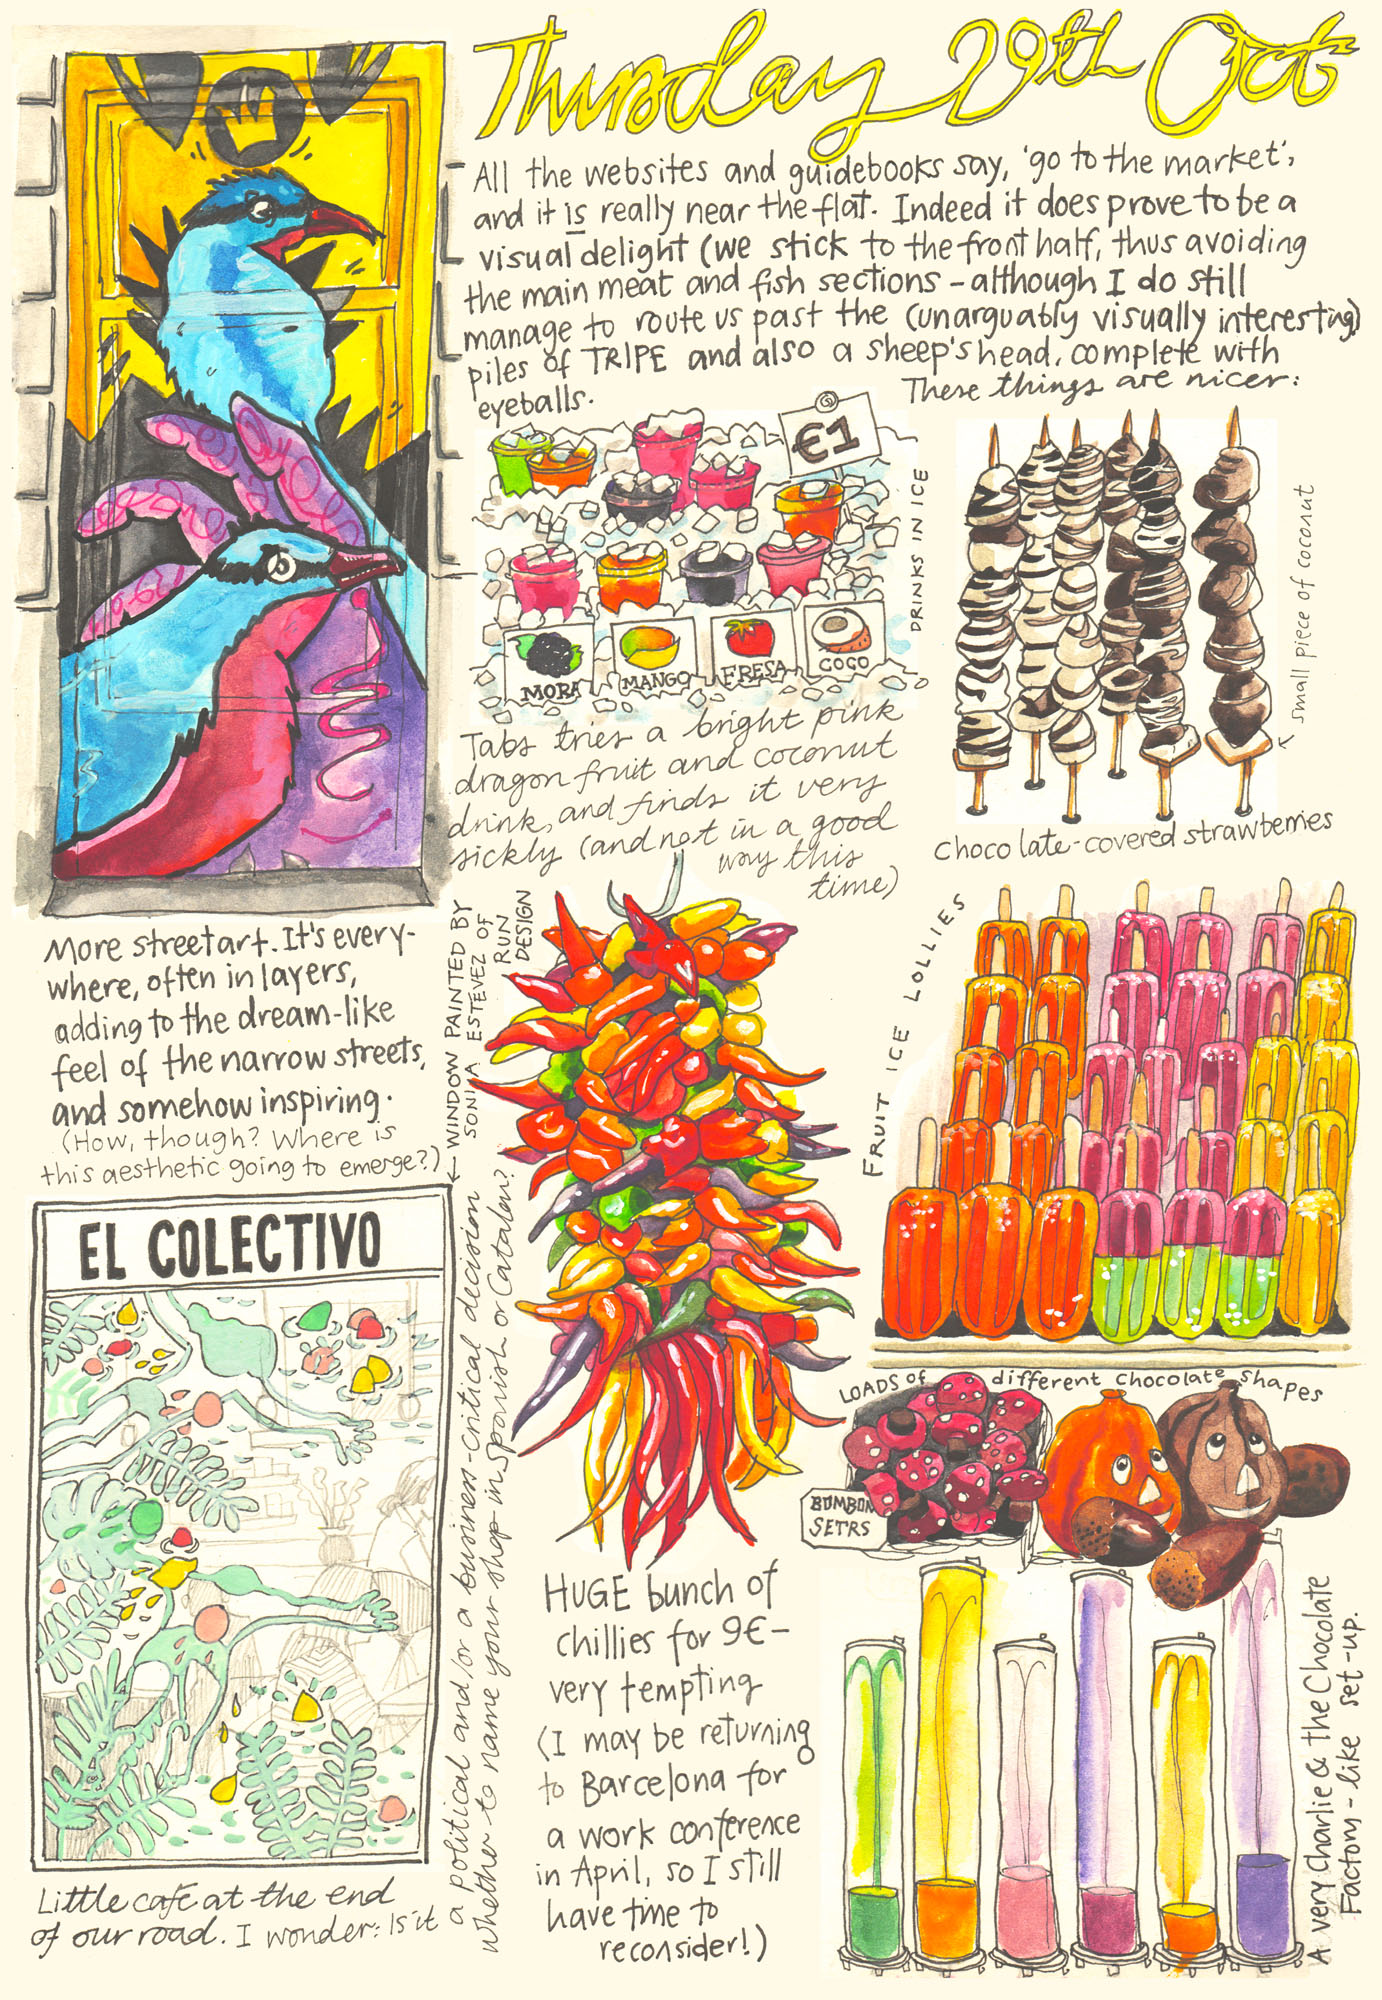 Thursday 29th Oct
All the websites and guidebooks say, 'go to the market',
and it is really near the flat. Indeed it does prove to be a
visual delight (we stick to the front half, thus avoiding
the main meat and fish sections - although I do still
manage to route us past the (unarguably visually interesting)
piles of TRIPE and also a sheep's head, complete with
eyeballs.
These things are nicer:
€1
DRINKS IN ICE
MORA
MANGO
FRESA
COCO
Tabs tries a bright pink
dragon fruit and coconut
drink, and finds it very
sickly (and not in a good
way this
time)
small piece of coconut
chocolate-covered strawberries
More street art. It's every-
where, often in layers,
adding to the dream-like
feel of the narrow streets,
and somehow inspiring.
(How, though? Where is
this aesthetic going to emerge?)
WINDOW PAINTED BY
SONIA ESTEVEZ OF
RUN
DESIGN
EL COLECTIVO
Little café at the end
of our road. I wonder: Is it
a political and/or a business-critical decision
whether to name your shop in Spanish or Catalan?
HUGE bunch of
chillies for 9€-
very tempting
(I may be returning
to Barcelona for
a work conference
in April, so I still
have time to
reconsider!)
FRUIT ICE LOLLIES
LOADS of different chocolate shapes
BOMBON
SETRS
A very Charlie & the Chocolate
Factory-like set-up.